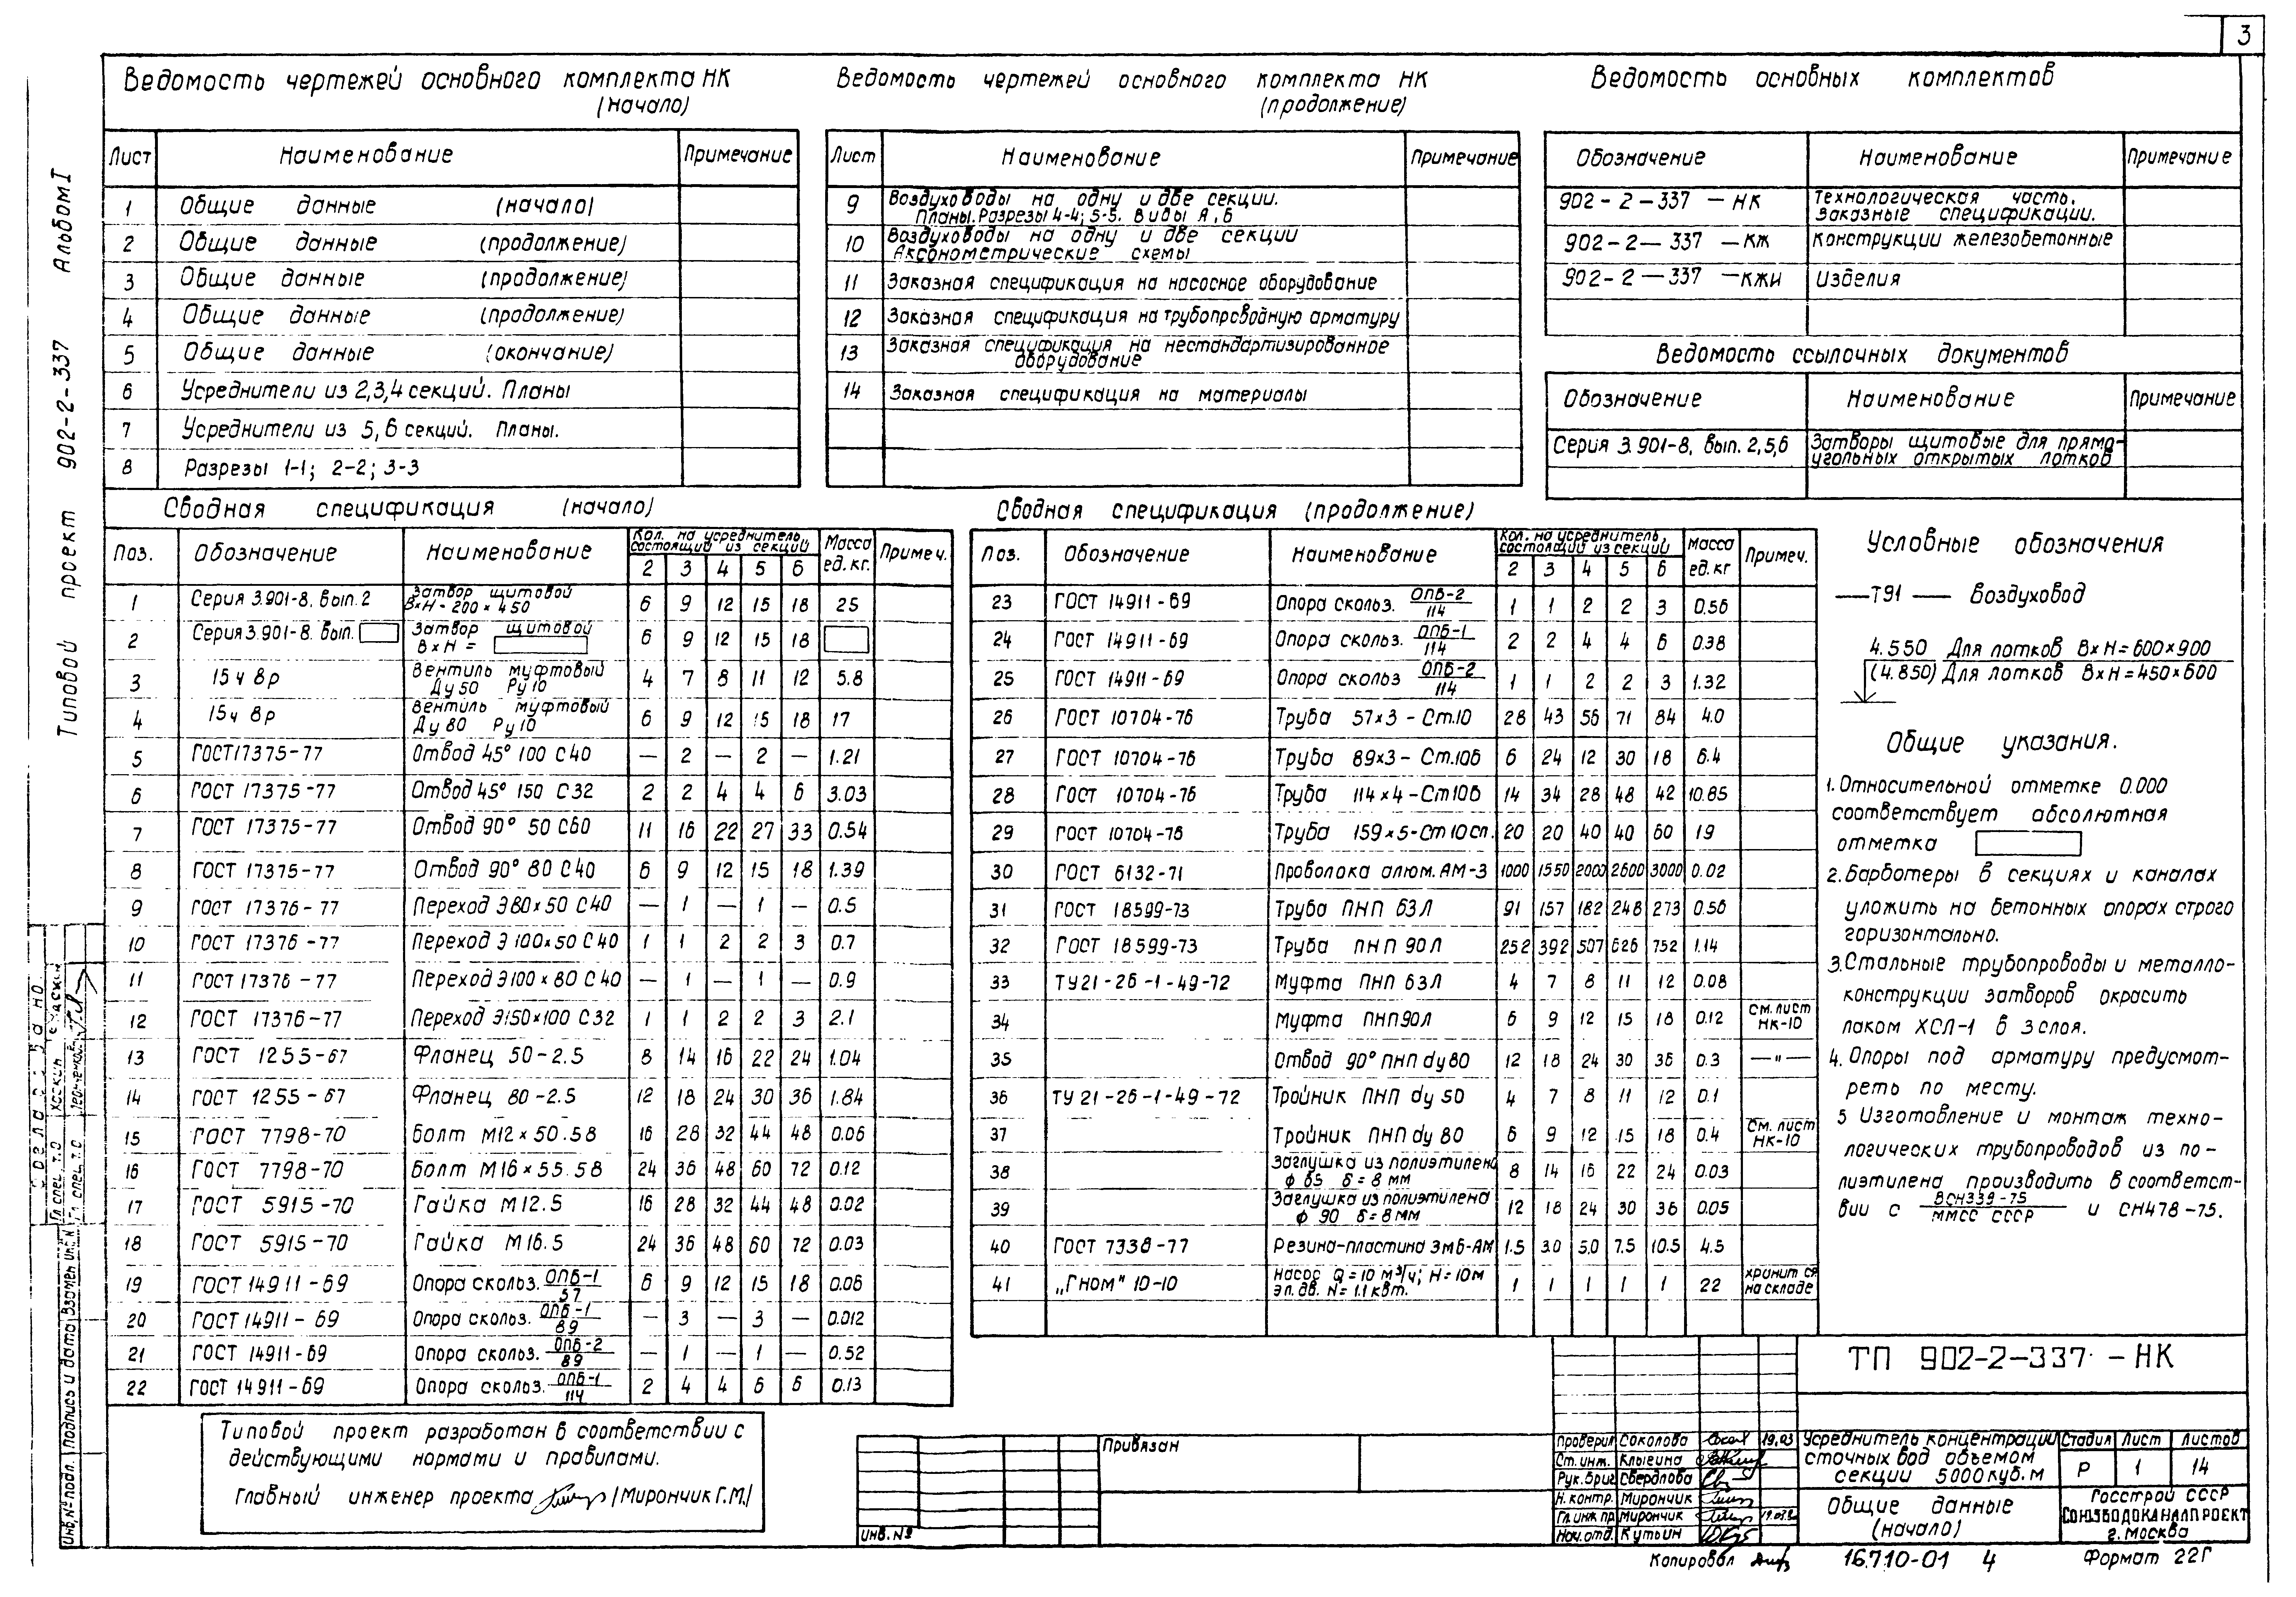 3
Ведомость чертежей основного комплекта НК
(начало)
Лист Наименование Примечание
1 Общие данные (начало)
2 Общие данные (продолжение)
3 Общие данные (продолжение)
4 Общие данные (продолжение)
5 Общие данные (окончание)
6 Усреднители из 2,3,4 секций. Планы
7 Усреднители из 5,6 секций. Планы.
8 Разрезы 1-1; 2-2; 3-3
Ведомость чертежей основного комплекта НК
(продолжение)
Лист Наименование Примечание
9 Воздуховоды на одну и две секции.
Планы. Разрезы 4-4; 5-5. Виды А, Б
10 Воздуховоды на одну и две секции
Аксонометрические схемы
11 Заказная спецификация на насосное оборудование
12 Заказная спецификация на трубопроводную арматуру
13 Заказная спецификация на нестандартизированное
оборудование
14 Заказная спецификация на материалы
Ведомость основных комплектов
Обозначение Наименование Примечание
902-2-337-НК Технологическая часть.
Заказные спецификации.
902-2-337-КЖ Конструкции железобетонные
902-2-337-КЖИ Изделия
Ведомость ссылочных документов
Обозначение Наименование Примечание
Серия 3.901-8, вып. 2,5,6 Затворы щитовые для прямо-
угольных открытых лотков
Сводная спецификация (начало)
Поз. Обозначение Наименование Кол. на усреднитель состоящий из секций Масса ед. кг. Примеч.
2 3 4 5 6
1 Серия 3.901-8. Вып. 2 Затвор щитовой BxH-200x450 6 9 12 15 18 25
2 Серия 3.901-8. Вып. Затвор щитовой BxH = 6 9 12 15 18
3 15ч 8р Вентиль муфтовый Ду 50 Ру 10 4 7 8 11 12 5.8
4 15ч 8р Вентиль муфтовый Ду 80 Ру 10 6 9 12 15 18 17
5 ГОСТ 17375-77 Отвод 45° 100 С40 — 2 — 2 — 1.21
6 ГОСТ 17375-77 Отвод 45° 150 С32 2 2 4 4 6 3.03
7 ГОСТ 17375-77 Отвод 90° 50 С60 11 16 22 27 33 0.54
8 ГОСТ 17375-77 Отвод 90° 80 С40 6 9 12 15 18 1.39
9 ГОСТ 17376-77 Переход Э80x50 С40 — 1 — 1 — 0.5
10 ГОСТ 17376-77 Переход Э 100x50 С40 1 1 2 2 3 0.7
11 ГОСТ 17376-77 Переход Э100x80 С40 — 1 — 1 — 0.9
12 ГОСТ 17376-77 Переход Э150x100 С32 1 1 2 2 3 2.1
13 ГОСТ 1255-67 Фланец 50-2.5 8 14 16 22 24 1.04
14 ГОСТ 1255-67 Фланец 80-2.5 12 18 24 30 36 1.84
15 ГОСТ 7798-70 Болт М12x50.58 16 28 32 44 48 0.06
16 ГОСТ 7798-70 Болт М16x55.58 24 36 48 60 72 0.12
17 ГОСТ 5915-70 Гайка М12.5 16 28 32 44 48 0.02
18 ГОСТ 5915-70 Гайка М16.5 24 36 48 60 72 0.03
19 ГОСТ 14911-69 Опора скольз. ОПБ-1/57 6 9 12 15 18 0.06
20 ГОСТ 14911-69 Опора скольз. ОПБ-1/89 — 3 — 3 — 0.012
21 ГОСТ 14911-69 Опора скольз. ОПБ-2/89 — 1 — 1 — 0.52
22 ГОСТ 14911-69 Опора скольз. ОПБ-1/114 2 4 4 6 6 0.13
Сводная спецификация (продолжение)
Поз. Обозначение Наименование Кол. на усреднитель, состоящий из секций Масса ед. кг Примеч.
2 3 4 5 6
23 ГОСТ 14911-69 Опора скольз. ОПБ-2/114 1 1 2 2 3 0.56
24 ГОСТ 14911-69 Опора скольз. ОПБ-1/114 2 2 4 4 6 0.38
25 ГОСТ 14911-69 Опора скольз ОПБ-2/114 1 1 2 2 3 1.32
26 ГОСТ 10704-76 Труба 57x3 - Ст.10 28 43 56 71 84 4.0
27 ГОСТ 10704-76 Труба 89x3 - Ст.10б 6 24 12 30 18 6.4
28 ГОСТ 10704-76 Труба 114x4 - Ст10б 14 34 28 48 42 10.85
29 ГОСТ 10704-76 Труба 159x5-Ст 10сп. 20 20 40 40 60 19
30 ГОСТ 6132-71 Проволока алюм. АМ-3 1000 1550 2000 2600 3000 0.02
31 ГОСТ 18599-73 Труба ПНП 63Л 91 157 182 248 273 0.56
32 ГОСТ 18599-73 Труба ПНП 90Л 252 392 507 626 752 1.14
33 ТУ21-26-1-49-72 Муфта ПНП 63Л 4 7 8 11 12 0.08
34 Муфта ПНП90Л 6 9 12 15 18 0.12 См. лист НК-10
35 Отвод 90° ПНП dу80 12 18 24 30 36 0.3 — " —
36 ТУ 21-26-1-49-72 Тройник ПНП dу 50 4 7 8 11 12 0.1
37 Тройник ПНП dу 80 6 9 12 15 18 0.4 См. лист НК-10
38 Заглушка из полиэтилена ф 65 δ=8 мм 8 14 16 22 24 0.03
39 Заглушка из полиэтилена ф 90 δ=8мм 12 18 24 30 36 0.05
40 ГОСТ 7338-77 Резина-пластина 3мб-АМ 1.5 3.0 5.0 7.5 10.5 4.5
41 „Гном" 10-10 Насос Q=10 м³/ч; H=10м эл. дв. N=1.1 квт. 1 1 1 1 1 22 хранится на складе
Условные обозначения
—Т91— Воздуховод
4.550 Для лотков BxH=600x900
(4.850) Для лотков BxH=450x600
Общие указания.
1. Относительной отметке 0.000
соответствует абсолютная
отметка
2. Барботеры в секциях и каналах
уложить на бетонных опорах строго
горизонтально.
3. Стальные трубопроводы и металло-
конструкции затворов окрасить
лаком ХСЛ-1 в 3 слоя.
4. Опоры под арматуру предусмот-
реть по месту.
5 Изготовление и монтаж техно-
логических трубопроводов из по-
лиэтилена производить в соответст-
вии с ВСН339-75/ММСС СССР и СН478-75.
Типовой проект разработан в соответствии с
действующими нормами и правилами.
Главный инженер проекта /Мирончик Г.М./
Привязан
Инв. №
ТП 902-2-337 - НК
Проверил Соколова 19.03
Ст. инж. Клыгина
Рук. бриг Свердлова
Н. контр. Мирончик
Гл. инж. пр. Мирончик
Нач. отд. Кутьин
Усреднитель концентрации
сточных вод объемом
секции 5000 куб. м
Стадия Лист Листов
Р 1 14
Общие данные
(начало)
Госстрой СССР
СОЮЗВОДОКАНАЛПРОЕКТ
г. Москва
Копировал
16710-01 4
Формат 22Г
Типовой проект 902-2-337 Альбом I
Согласовано
Гл. спец. Т.О
Гл. спец. Т.С
Инв. № подл. Подпись и дата Взамен инв. №